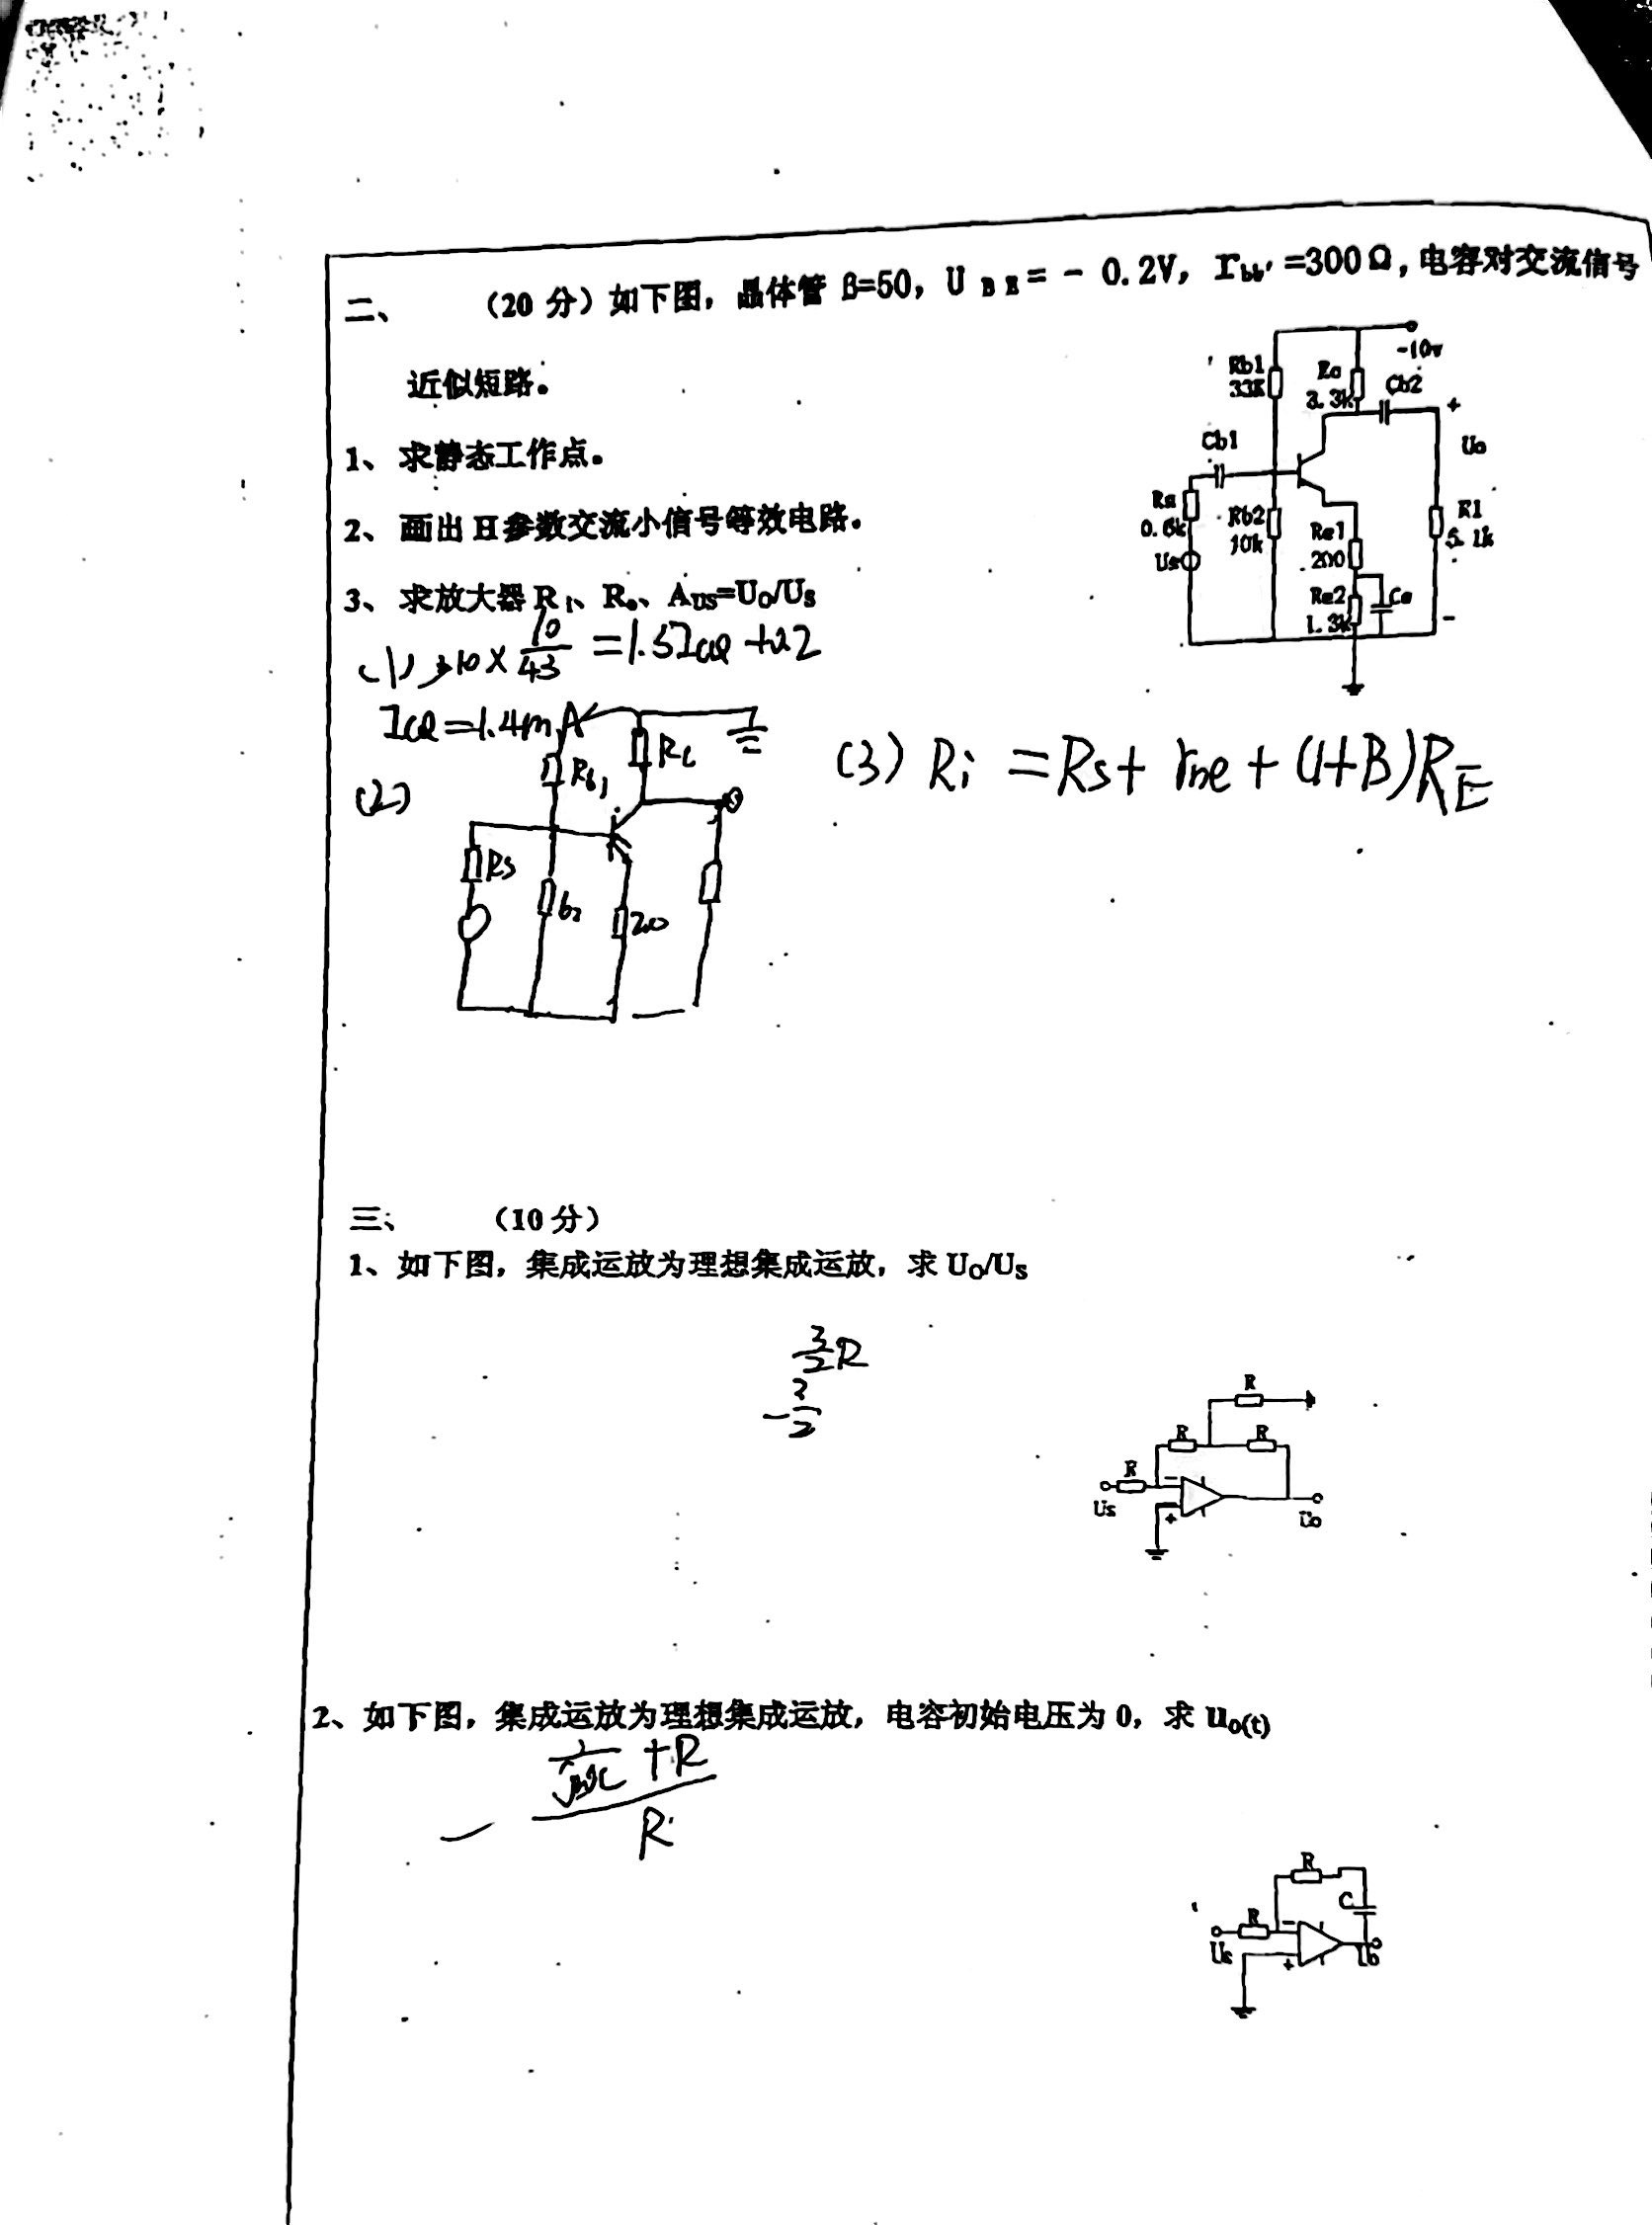 二、 （20 分）如下图，晶体管 β=50，U BE = - 0.2V，rbb' =300Ω，电容对交流信号
近似短路。
1、求静态工作点。
2、画出 H 参数交流小信号等效电路。
3、求放大器 Ri、Ro、AUS=UO/US
Rb1
33K
Rc
3.3k
-10v
Cb2
+
Uo
Cb1
Rs
0.6k
Us
Rb2
10k
Re1
200
Re2
1.3k
Ce
Rl
5.1k
-
10 × 10/43 = 1.5ICQ +
ICQ = 1.4mA
(2)
Rb1
Rc
Rs
b2
(3) Ri = Rs + rbe + (1+B)RE
三、 （10 分）
1、如下图，集成运放为理想集成运放，求 UO/US
3/2 R
- 3/2
R
R R
R
-
Us
+
Uo
2、如下图，集成运放为理想集成运放，电容初始电压为 0，求 uo(t)
+R
—
R
R
C
R
-
Us
+